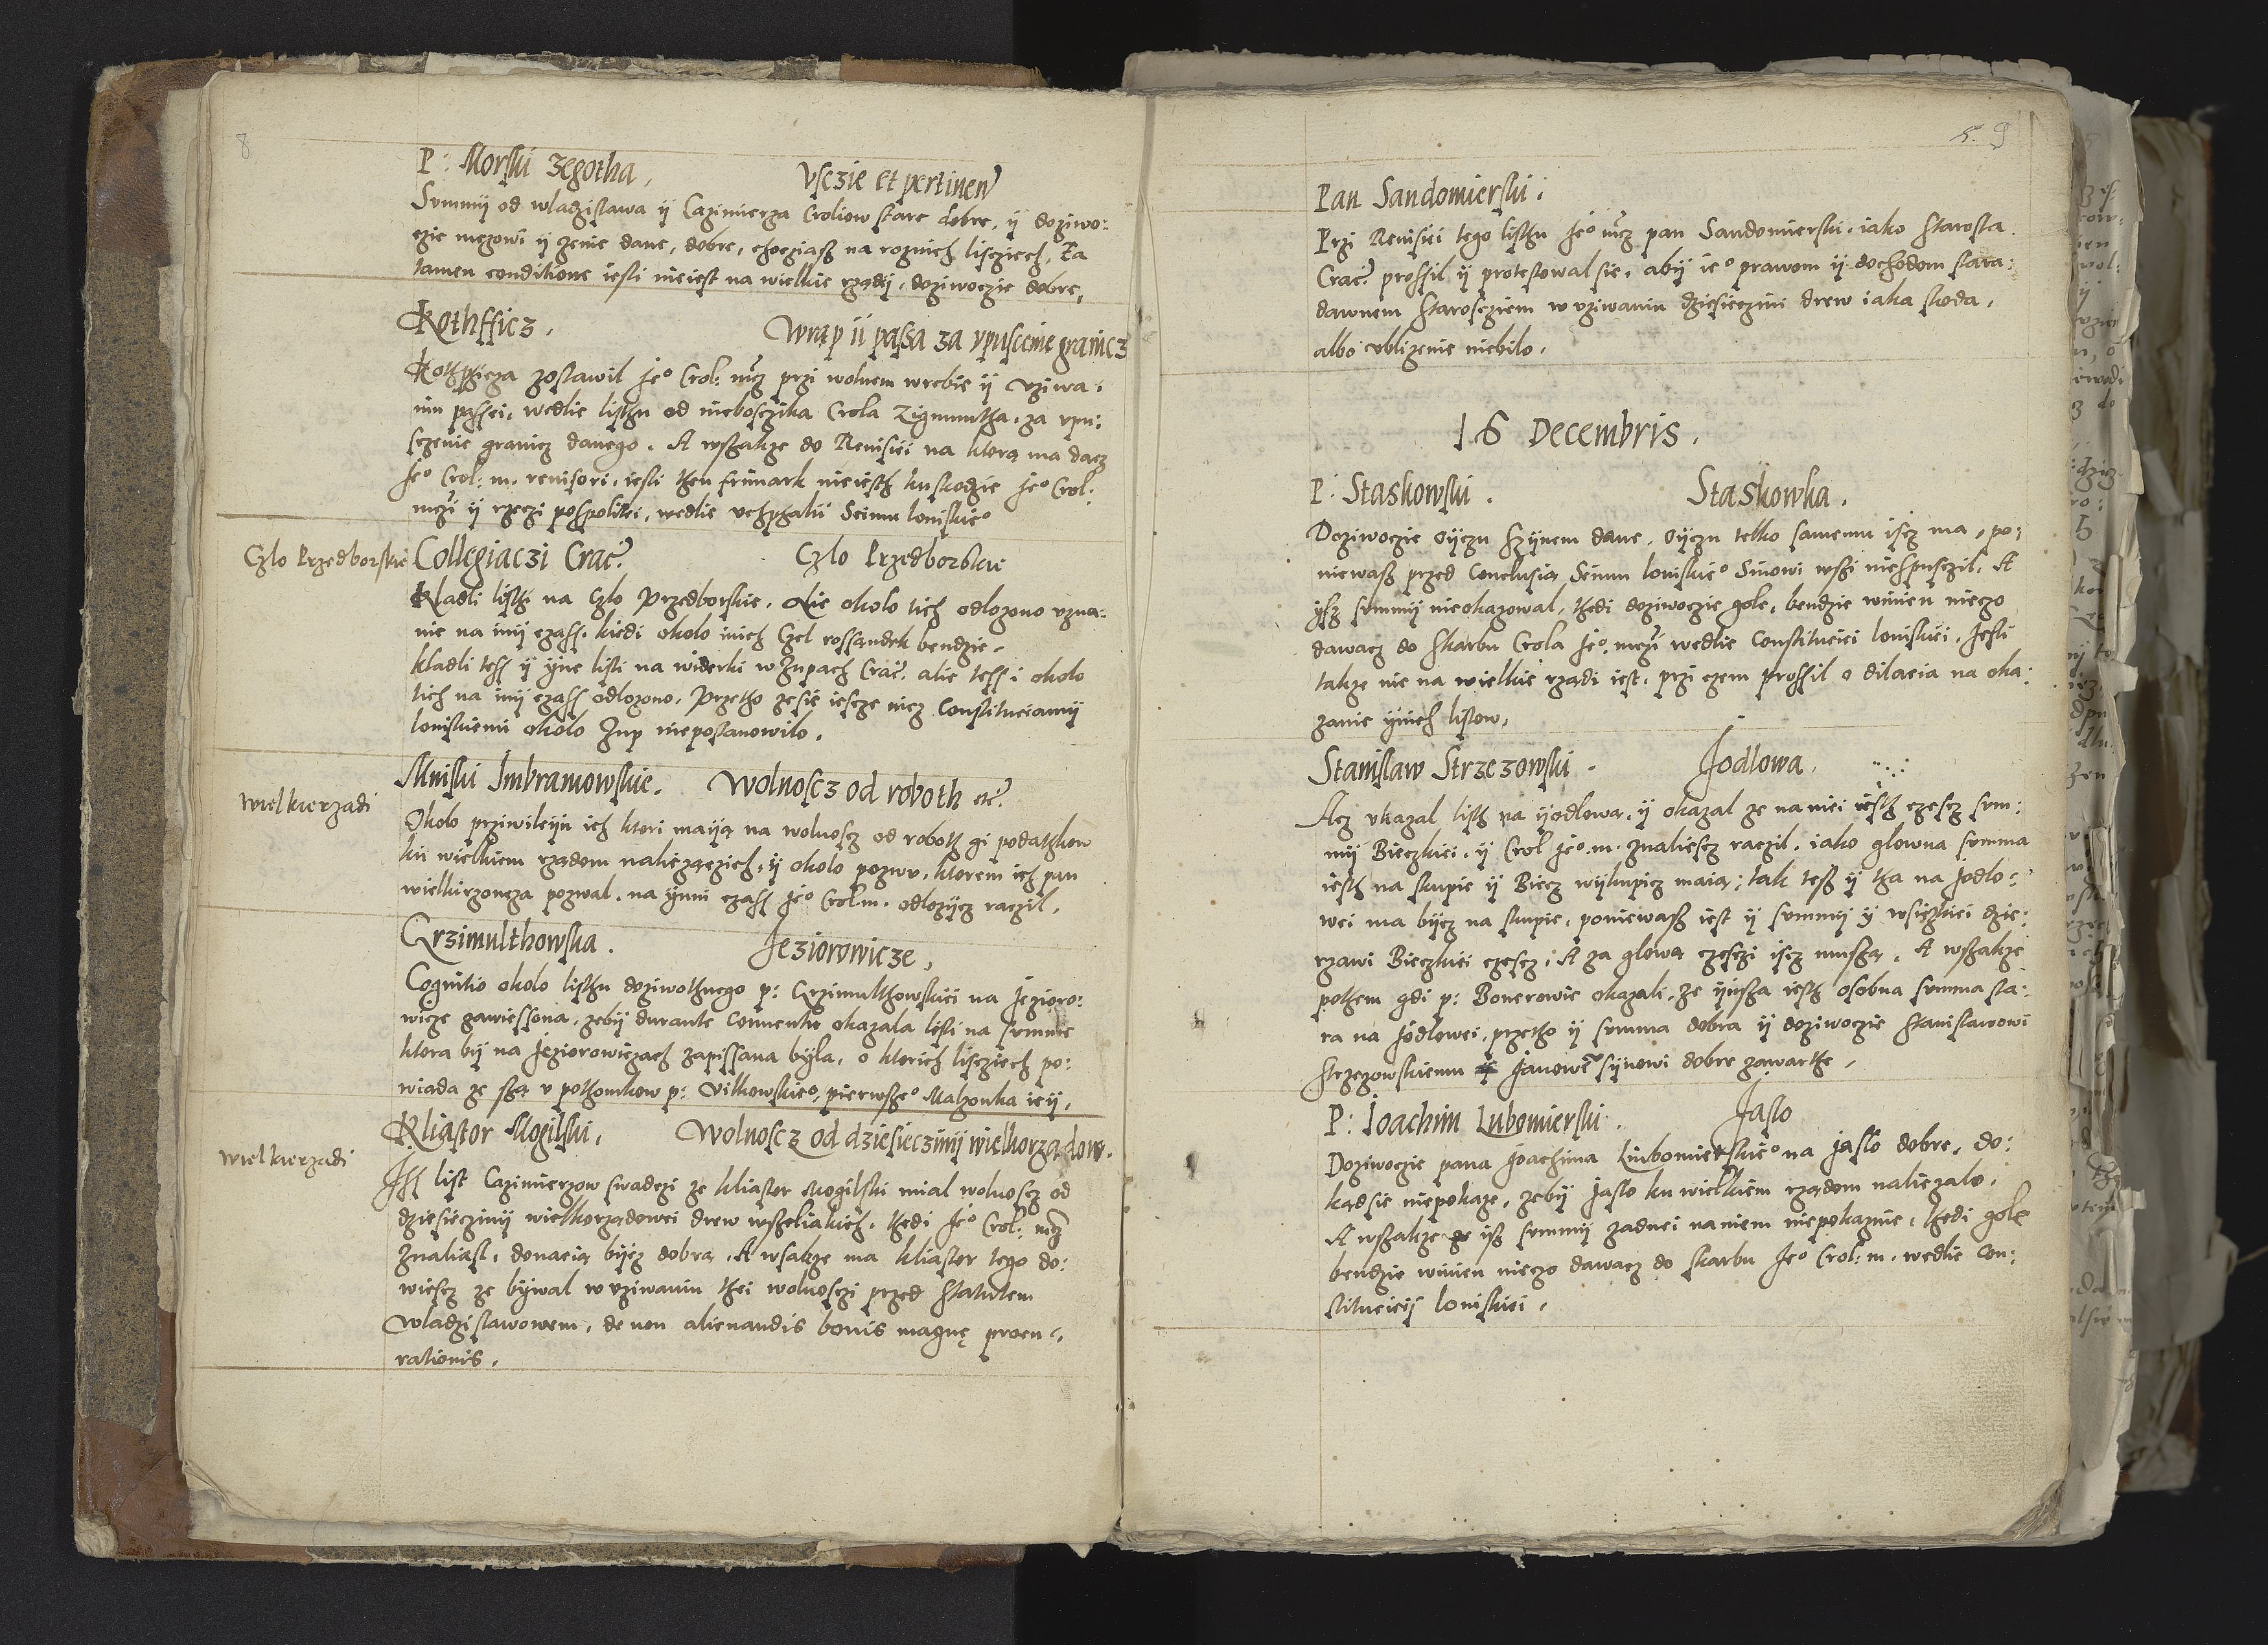 8
P: Morski Zegotha, Vsczie et pertinen
Summy od wladzislawa ÿ Cazimierza Croliow stare dobre, ÿ doziwo:
czie mezowi ÿ zenie dane, dobre, choczias na roznich lisciech, Ea
tamen conditione iesli nieiest na wielkie rządÿ, doziwoczie dobre,
Kothfficz. Wrąp ii passa za vpuscenie granicz
zostawil Jeo Crol: mcz przi wolnem wrebie ÿ vziwa:
niu passei, wedlie listhu od niebosczika Crola Zigmuntha, za vpu:
sczenie granicz danego. A wszakze do Reuisiei na ktorą ma dacz
Jeo Crol: m. reuisori, iesli then frimark nieiesth ku skodzie Jeo Crol:
mczi ÿ rzeczi pospolitei, wedlie vchphalii Seimu loniskieo
Czlo Przedborskie Collegiaczi Crac. Czlo Przedborskie
Kladli listhi na Czlo Przedborskie. Alie okolo tich odlozono uzna:
nie na inÿ czass, kiedi okolo inich Czel rossandek bendzie.
kladli tess ÿ ÿne listi na widerki w Zupach Crac. alie tess i okolo
tich na inÿ czass odlozono, Przetho ze sie iescze nicz Constitucianÿ
loniskiemi okolo Zup niepostanowilo.
wielkierzadi
Mniski Imbramowskie. Wolnoscz od roboth etc.
Okolo prziwileÿu ich ktori maÿą na wolnoscz od roboth gi podathkow
ku wielkiem rządom naliezączich, ÿ okolo pozwu, ktorem ich pan
wielkirzoncza pozwal, na ÿnni czass Jeo Crol. m. odlozÿcz raczil.
Crzimulthowska. Jeziorowicze,
Cognitio okolo listhu doziwothnego p: Crzimulthowskiei na Jezioro:
wicze zawiessona, zebÿ durante Conuentu okazala listi na summe
ktora bÿ na Jeziorowiczach zapissana bÿla, o ktorich liscziech po:
wiada ze są v pothomkow p: Vilkowskieo, pierwszeo Malzonka ieÿ,
wielkierzadi
Kliastor Mogilski, Wolnoscz od dziesieczinÿ wielkorządow.
Iss list Cazimierzow swadczi ze kliastor Mogilski mial wolnoscz od
dziesieczinÿ wielkorządowei drew wszeliakich, thedi Jeo Crol: mcz
znaliasl, donacią bÿcz dobrą, A wsakze ma kliastor tego do:
wiescz ze bÿwal w vziwaniu thei wolnosczi przed statutem
wladzislawowem, de non alienandis bonis magnę procu:
rationis.
5. 9
Pan Sandomierski.
Przi Reuisiei tego listhu Jeo mcz pan Sandomierski, iako starosta
Crac. prossil ÿ protestowal sie, abÿ ieo prawom ÿ dochodom stara:
dawnem starosciem w vziwaniu dziesieczini drew iaka skoda,
albo vblizenie niebilo.
16 Decembris.
P: Staskowski. Staskowka.
Doziwoczie oÿczu szÿnem dane, oÿczu telko samemu iscz ma, po:
niewasz przed Conclusią Seimu loniskieo Sinowi wszi niespusczil. A
ÿsz summÿ nieokazowal, thedi doziwoczie gole, bendzie winien nieczo
dawacz do skarbu Crola Jeo. mczi wedlie Constituciei loniskiei. Jesli
takze nie na wielkie rządi iest, przi czem prossil o dilacia na oka:
zanie ÿnich listow,
Stanislaw Strzezowski. Jodlowa.
Acz vkazal listh na ÿodlową, ÿ okazal ze na niei iesth czescz sum:
mÿ Bieczkiei, ÿ Crol Jeo. m. znaliescz raczil, iako glowna summa
iesth na skupie ÿ Biecz wÿkupicz maią; tak tesz ÿ tha na Jodlo:
wei ma bÿcz na skupie, poniewasz iest ÿ summÿ ÿ wsiezkiei dzie:
rzawi Bieczkiei czescz, A za glową czesczi iscz muszą. A wszakze
pothem gdi p: Bonerowie okazali, ze ÿnsza iesth osobna summa sta:
ra na Jodlowei, przetho ÿ summa dobra ÿ doziwoczie stanislawowi
strzezowskiemu ÿ Janowi sÿnowi dobre zawarthe,
P: Ioachim Lubomierski. Jaslo
Doziwoczie pana Joachima Liubomierskieo na Jaslo dobre, do:
kądsie niepokaze, zebÿ Jaslo ku wielkiem rządom naliezalo.
A wszakze isz summÿ zadnei naniem niepokazuie, thedi gole
bendzie winien nieczo dawacz do skarbu Jeo Crol: m. wedlie Con:
stitucieiÿ loniskiei.